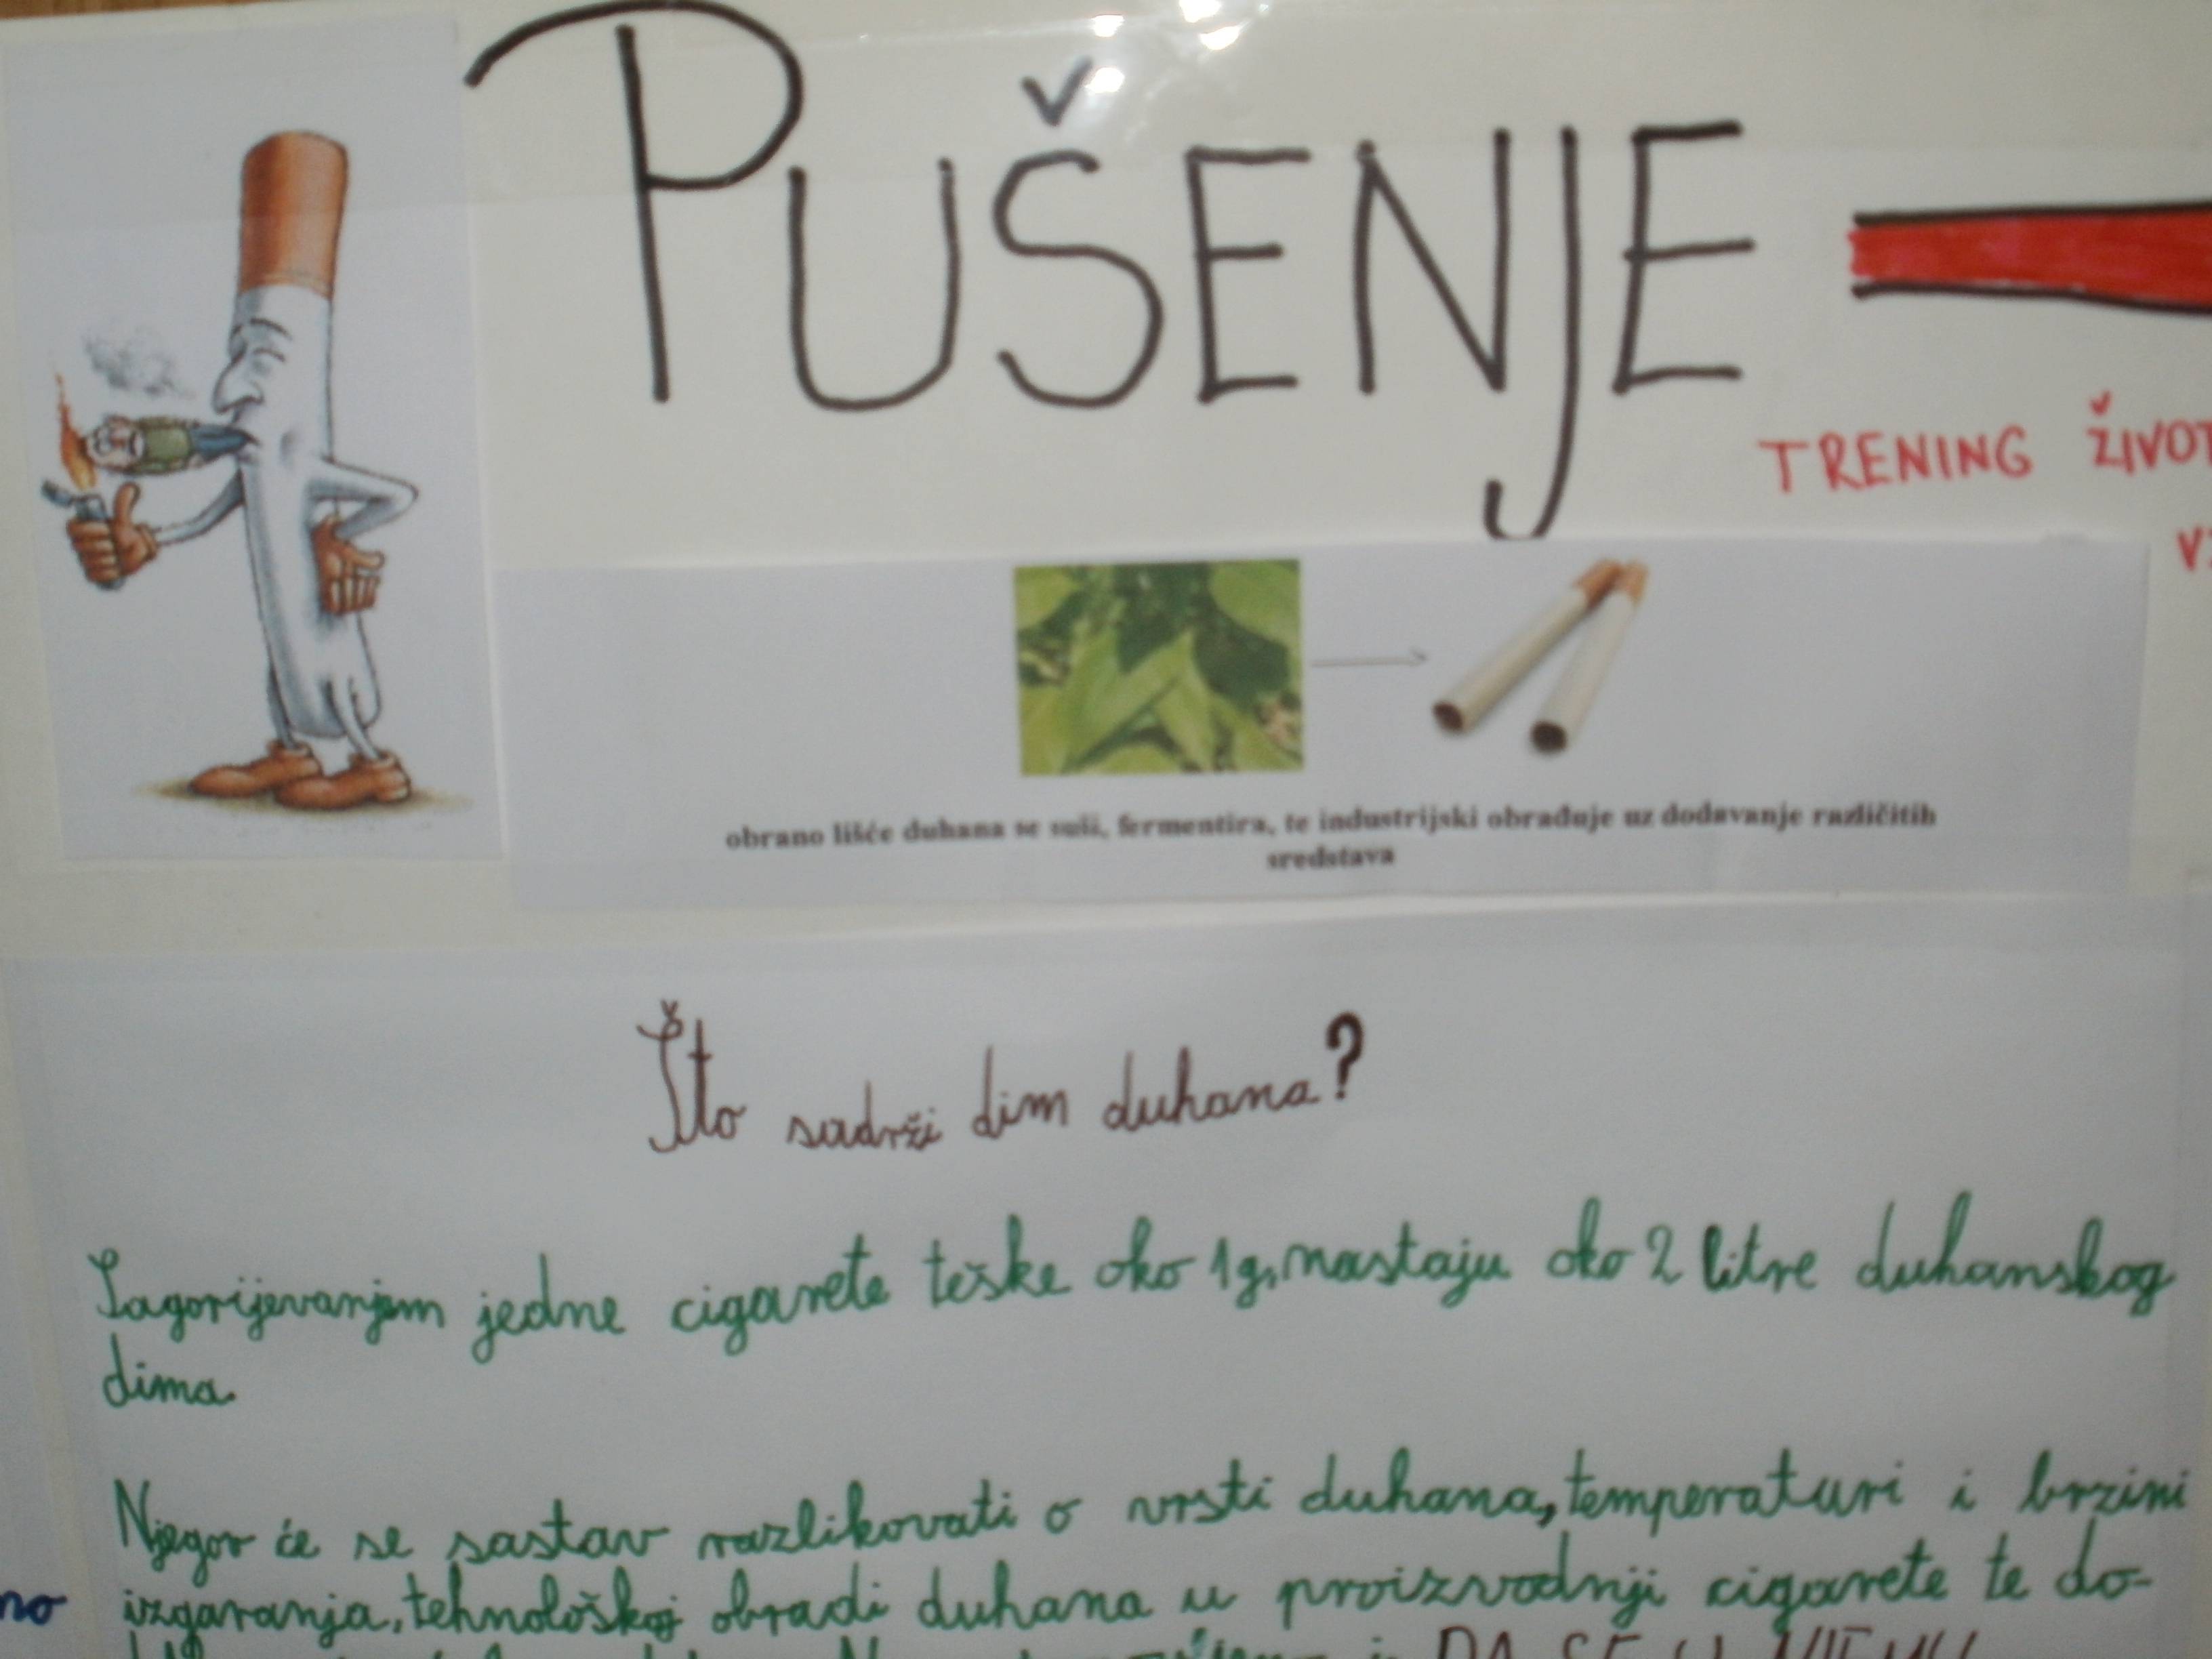 PUŠENJE
TRENING ŽIVOT
obrano lišće duhana se suši, fermentira, te industrijski obrađuje uz dodavanje različitih
sredstava
Što sadrži dim duhana?
Sagorijevanjem jedne cigarete teške oko 1g, nastaju oko 2 litre duhanskog
dima.
Njegov će se sastav razlikovati o vrsti duhana, temperaturi i brzini
no
izgaranja, tehnološkoj obradi duhana u proizvodnji cigarete te do-
DA SE U NJEMU